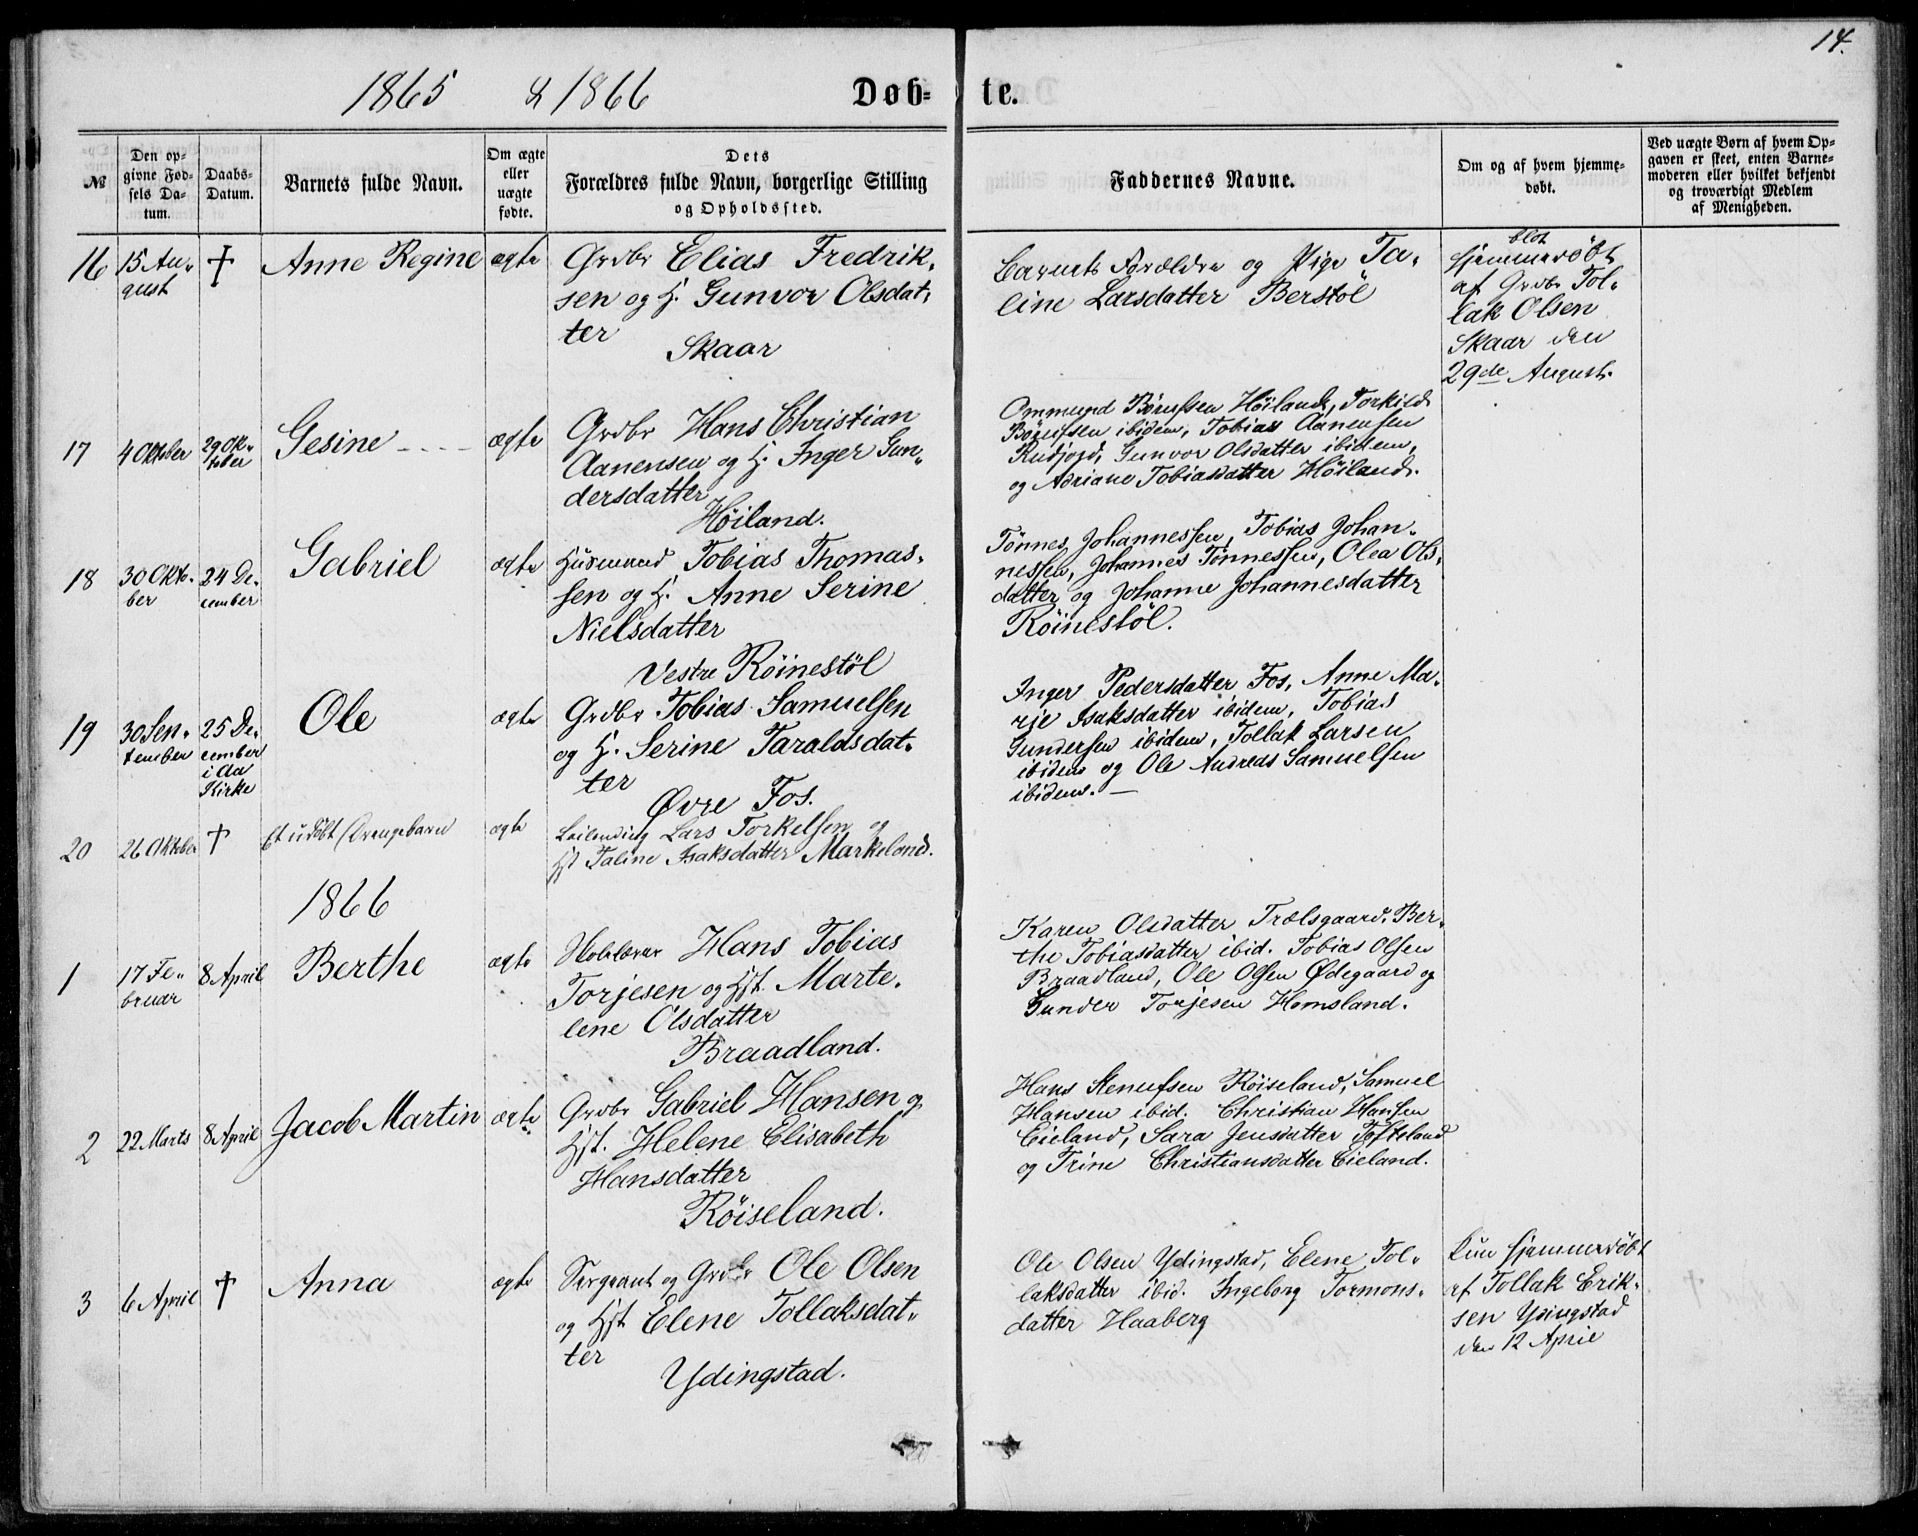 14.
1865 & 1866 Døb- te.
№
Den op-
givne Fød-
sels Da-
tum.
Daabs-
Datum.
Barnets fulde Navn.
Om ægte
eller
uægte
fødte.
Dets
Forældres fulde Navn, borgerlige Stilling
og Opholdssted.
Faddernes Navne.
Om og af hvem hjemme-
døbt.
Ved uægte Børn af hvem Op-
gaven er skeet, enten Barne-
moderen eller hvilket bekjendt
og troværdigt Medlem
af Menigheden.
16
15 Au-
gust
†
Anne Regine
ægte
Grdbr Elias Fredrik-
sen og H. Gunvor Olsdat-
ter
Skaar
Barnets Forældre og Pige Ta-
line Larsdatter Berstöl
blot
hjemmedöbt
af Grdbr Tol-
lak Olsen
Skaar den
29de August.
17
4 Oktober
29 Ok-
tober
Gesine
ægte
Grdbr Hans Christian
Aanensen og H. Inger Gun-
dersdatter
Höiland.
Ommund Börufsen Höiland, Torkild
Börufsen ibidem, Tobias Aanensen
Rudjord, Gunvor Olsdatter ibidem,
og Adriane Tobiasdatter Höiland.
18
30 Okto-
ber
24 De-
cember
Gabriel
ægte
Husmand Tobias Thomas-
sen og H. Anne Serine
Nielsdatter
Vestre Röinestöl
Tönnes Johannessen, Tobias Johan-
nessen, Johannes Tönnessen, Olea Ols-
datter og Johanne Johannesdatter
Röinestöl.
19
30 Sep-
tember
25 De-
cember
i Aa
Kirke
Ole
ægte
Grdbr Tobias Samuelsen
og H. Serine Taraldsdat-
ter
Øvre Fos.
Inger Pedersdatter Fos, Anne Ma-
rie Isaksdatter ibidem, Tobias
Gundersen ibidem, Tollak Larsen
ibidem og Ole Andreas Samuelsen
ibidem. —
20
26 Oktober
†
Et udöbt Drengebarn
ægte
Leilending Lars Torkelsen og
Hst Taline Isaksdatter Markeland.
1866
1
17 Fe-
bruar
8 April
Berthe
ægte
Hans Tobias
Torjesen og Hst. Marte-
lene Olsdatter
Braadland.
Karen Olsdatter Trælsgaard, Ber-
the Tobiasdatter ibid. Tobias Olsen
Braadland, Ole Olsen Ødegaard og
Gunder Torjesen Homsland.
2
22 Marts
8 April
Jacob Martin
ægte
Grdbr Gabriel Hansen og
Hst. Helene Elisabeth
Hansdatter
Röiseland.
Hans Röiseland, Samuel
Hansen ibid. Christian Hansen
Eieland, Sara Jensdatter Tofteland
og Trine Christiansdatter Eieland.
3
6 April
†
Anna
ægte
Sergeant og Grdbr Ole Olsen
og Hst Elene Tollaksdat-
ter
Ydingstad.
Ole Olsen Ydingstad, Elene Tol-
laksdatter ibid. Ingeborg Tormons-
datter Haaberg
Kun hjemmedöbt
af Tollak Erik-
sen Ydingstad
den 12 April